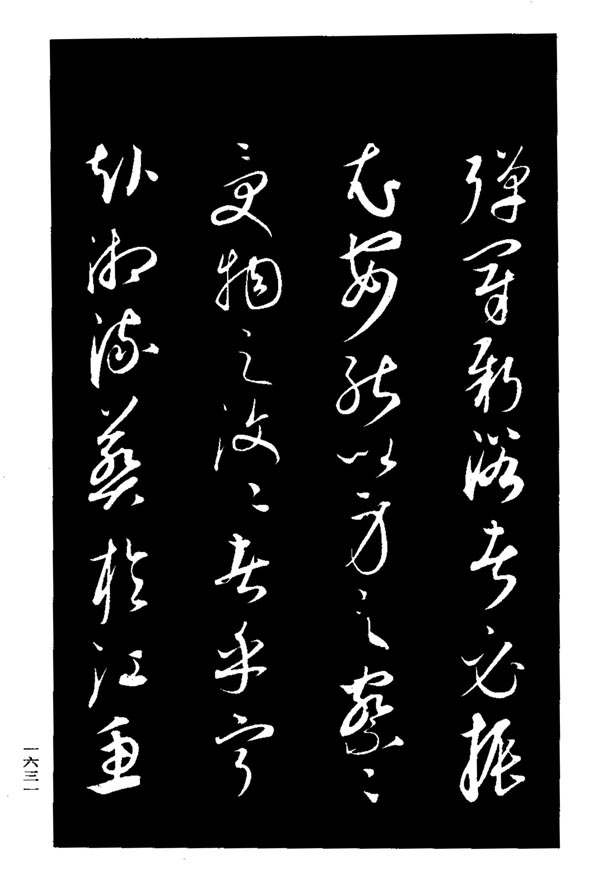 彈冠新浴者必振
衣安能以身之察々
受物之汶々者乎寧
赴湘流葬於江魚
一六三一